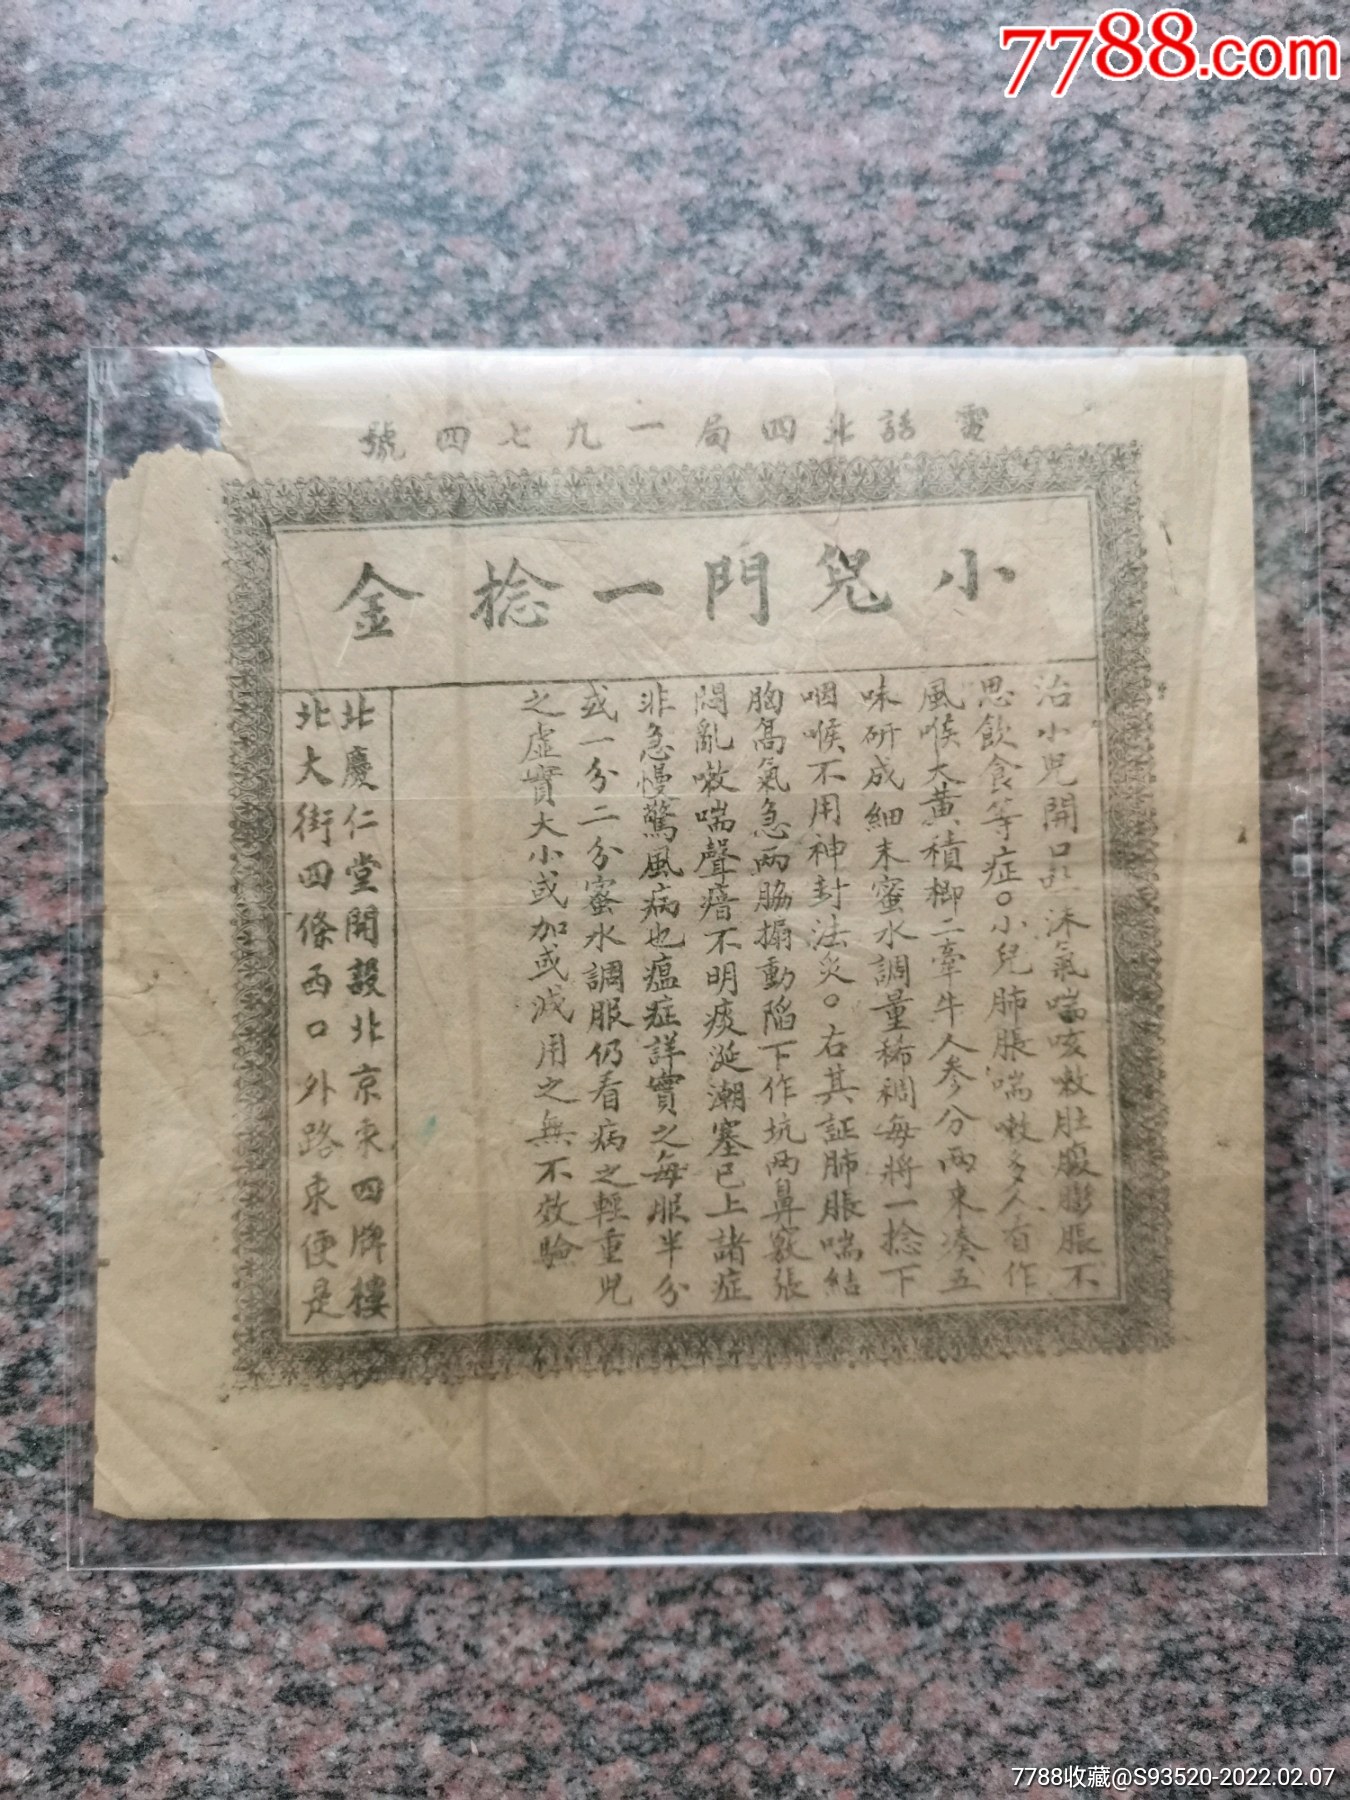 7788.com
電話北四局一九七四號
小兒門一捻金
治小兒開口上沫氣喘咳嗽肚腹膨脹不
思飲食等症。小兒肺脹喘嗽多人看作
風喉大黃積榔二牽牛人參分兩東湊五
味研成細末蜜水調量稀稠每將一捻下
咽喉不用神封法灸。右其証肺脹喘結
胸高氣急兩脇搧動陷下作坑兩鼻竅張
悶亂嗽喘聲瘖不明痰涎潮塞已上諸症
非急慢驚風病也瘟症詳實之每服半分
或一分二分蜜水調服仍看病之輕重兒
之虛實大小或加或减用之無不效驗
北慶仁堂開設北京東四牌樓
北大街四條西口外路東便是
7788收藏@S93520-2022.02.07